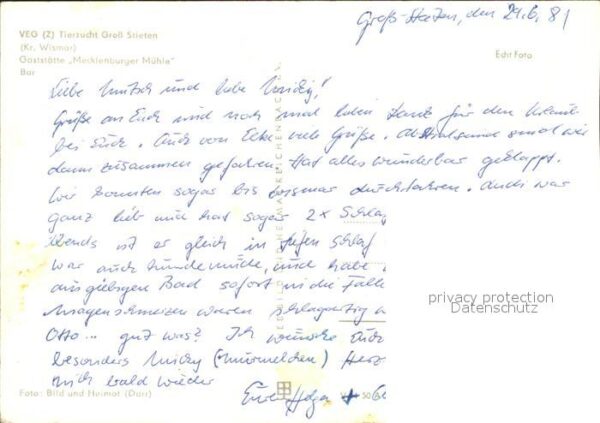 Groß-Stieten, den 29.6.81
VEG (Z) Tierzucht Groß Stieten
(Kr. Wismar)
Gaststätte „Mecklenburger Mühle"
Bar
Echt Foto
Liebe und liebe
Grüße an Euch und noch mal lieben Dank für den Urlaub
bei Euch. Auch von Ecke viele Grüße. Ab Stralsund sind wir
dann zusammen gefahren. Hat alles wunderbar geklappt.
Wir konnten sogar bis Wismar durchfahren. Auch war
ganz lieb und hat sogar 2x Schla
Abends ist er gleich in tiefen Schlaf
war auch hundemüde, und habe
ausgiebigen Bad sofort in die Falle
Magenschmerzen waren schlagartig
Otto... gut was? Ich wünsche Euch
besonders (Murmelchen) Herz
mich bald wieder
Eure Helga +
privacy protection
Datenschutz
Foto: Bild und Heimat (Dorr)